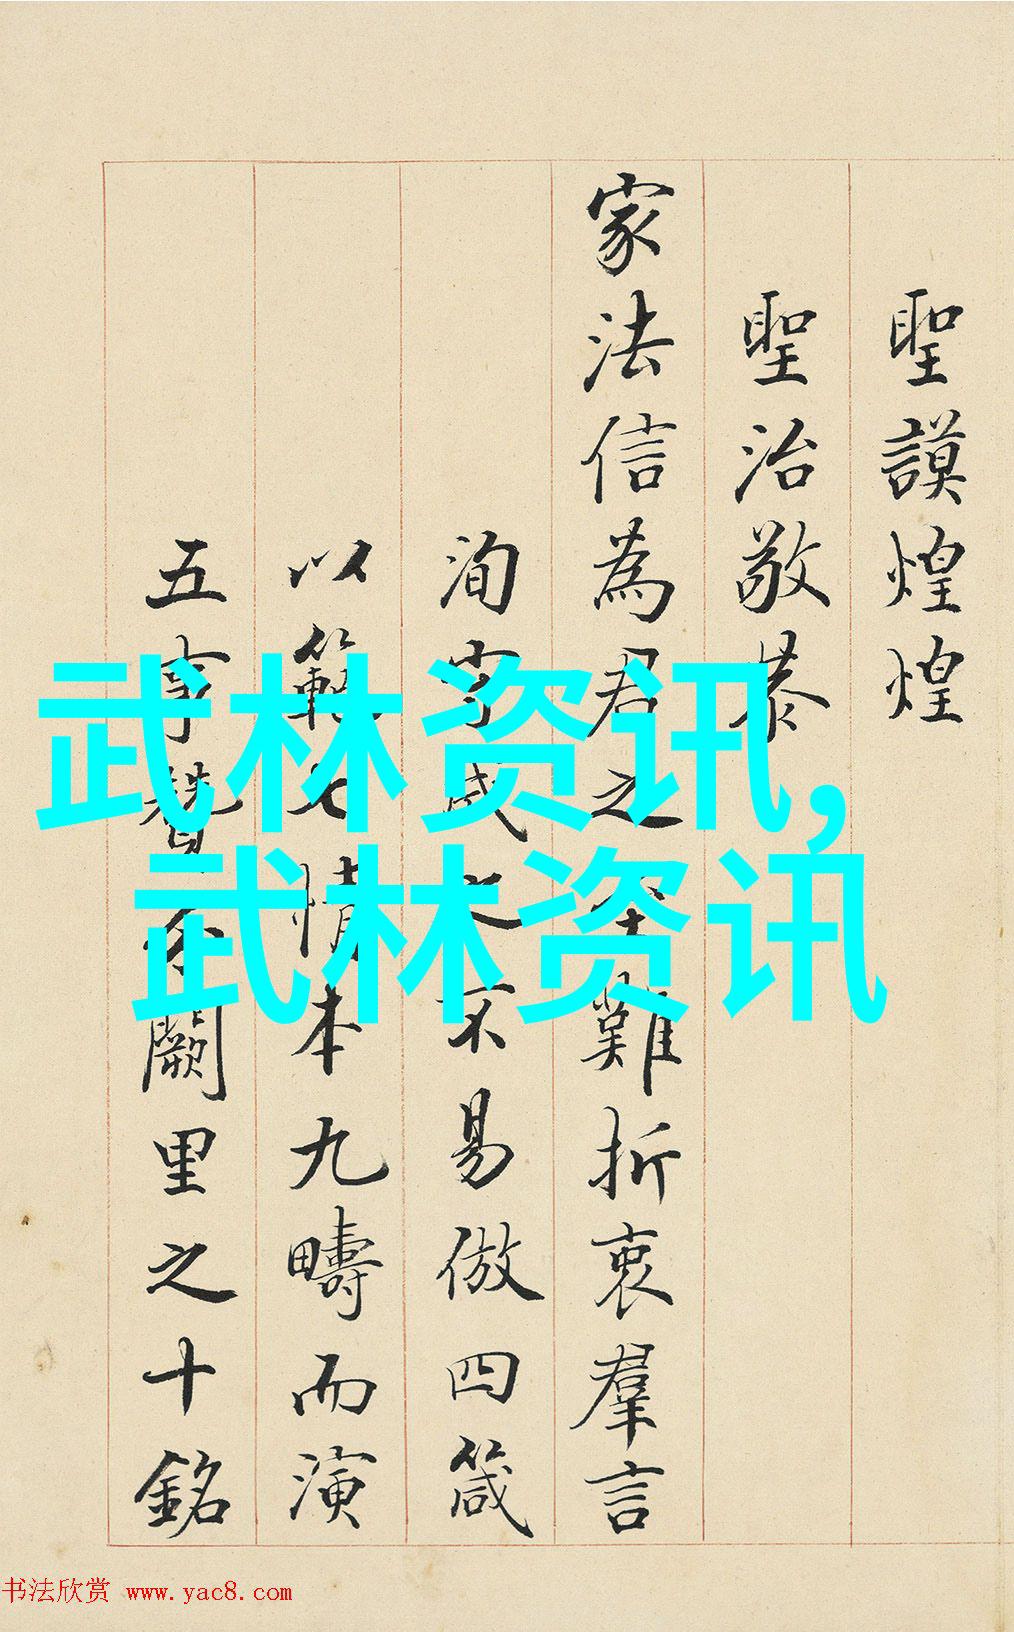 聖謨煌煌
聖治敬恭
家法信為君之難折衷羣言
洵守成之不易倣四箴
以範七情本九疇而演
五事贊闕里之十銘
武林资讯,
武林资讯
书法欣赏 www.yac8.com